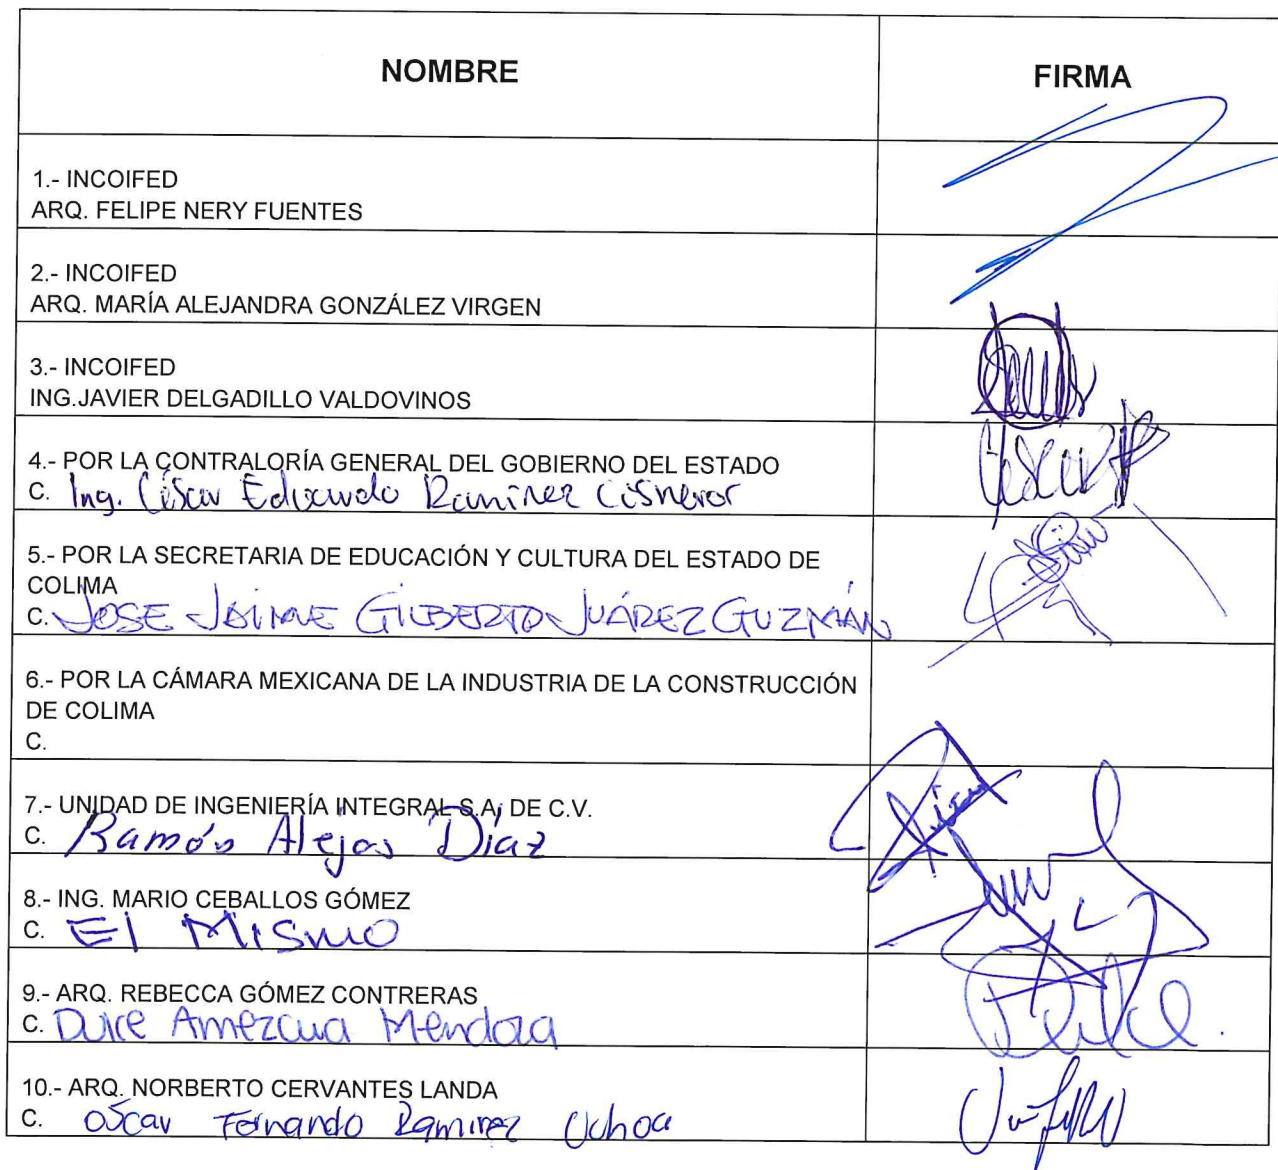 NOMBRE
FIRMA
1.- INCOIFED
ARQ. FELIPE NERY FUENTES
2.- INCOIFED
ARQ. MARÍA ALEJANDRA GONZÁLEZ VIRGEN
3.- INCOIFED
ING.JAVIER DELGADILLO VALDOVINOS
4.- POR LA CONTRALORÍA GENERAL DEL GOBIERNO DEL ESTADO
C. Ing. César Eduardo Ramírez Cisneros
5.- POR LA SECRETARIA DE EDUCACIÓN Y CULTURA DEL ESTADO DE
COLIMA
C. JOSE JAIME GILBERTO JUÁREZ GUZMÁN
6.- POR LA CÁMARA MEXICANA DE LA INDUSTRIA DE LA CONSTRUCCIÓN
DE COLIMA
C.
7.- UNIDAD DE INGENIERÍA INTEGRAL S.A. DE C.V.
C. Ramón Alejos Díaz
8.- ING. MARIO CEBALLOS GÓMEZ
C. El Mismo
9.- ARQ. REBECCA GÓMEZ CONTRERAS
C. Dulce Amezcua Mendoza
Dulce.
10.- ARQ. NORBERTO CERVANTES LANDA
C. Oscar Fernando Ramirez Uchoa